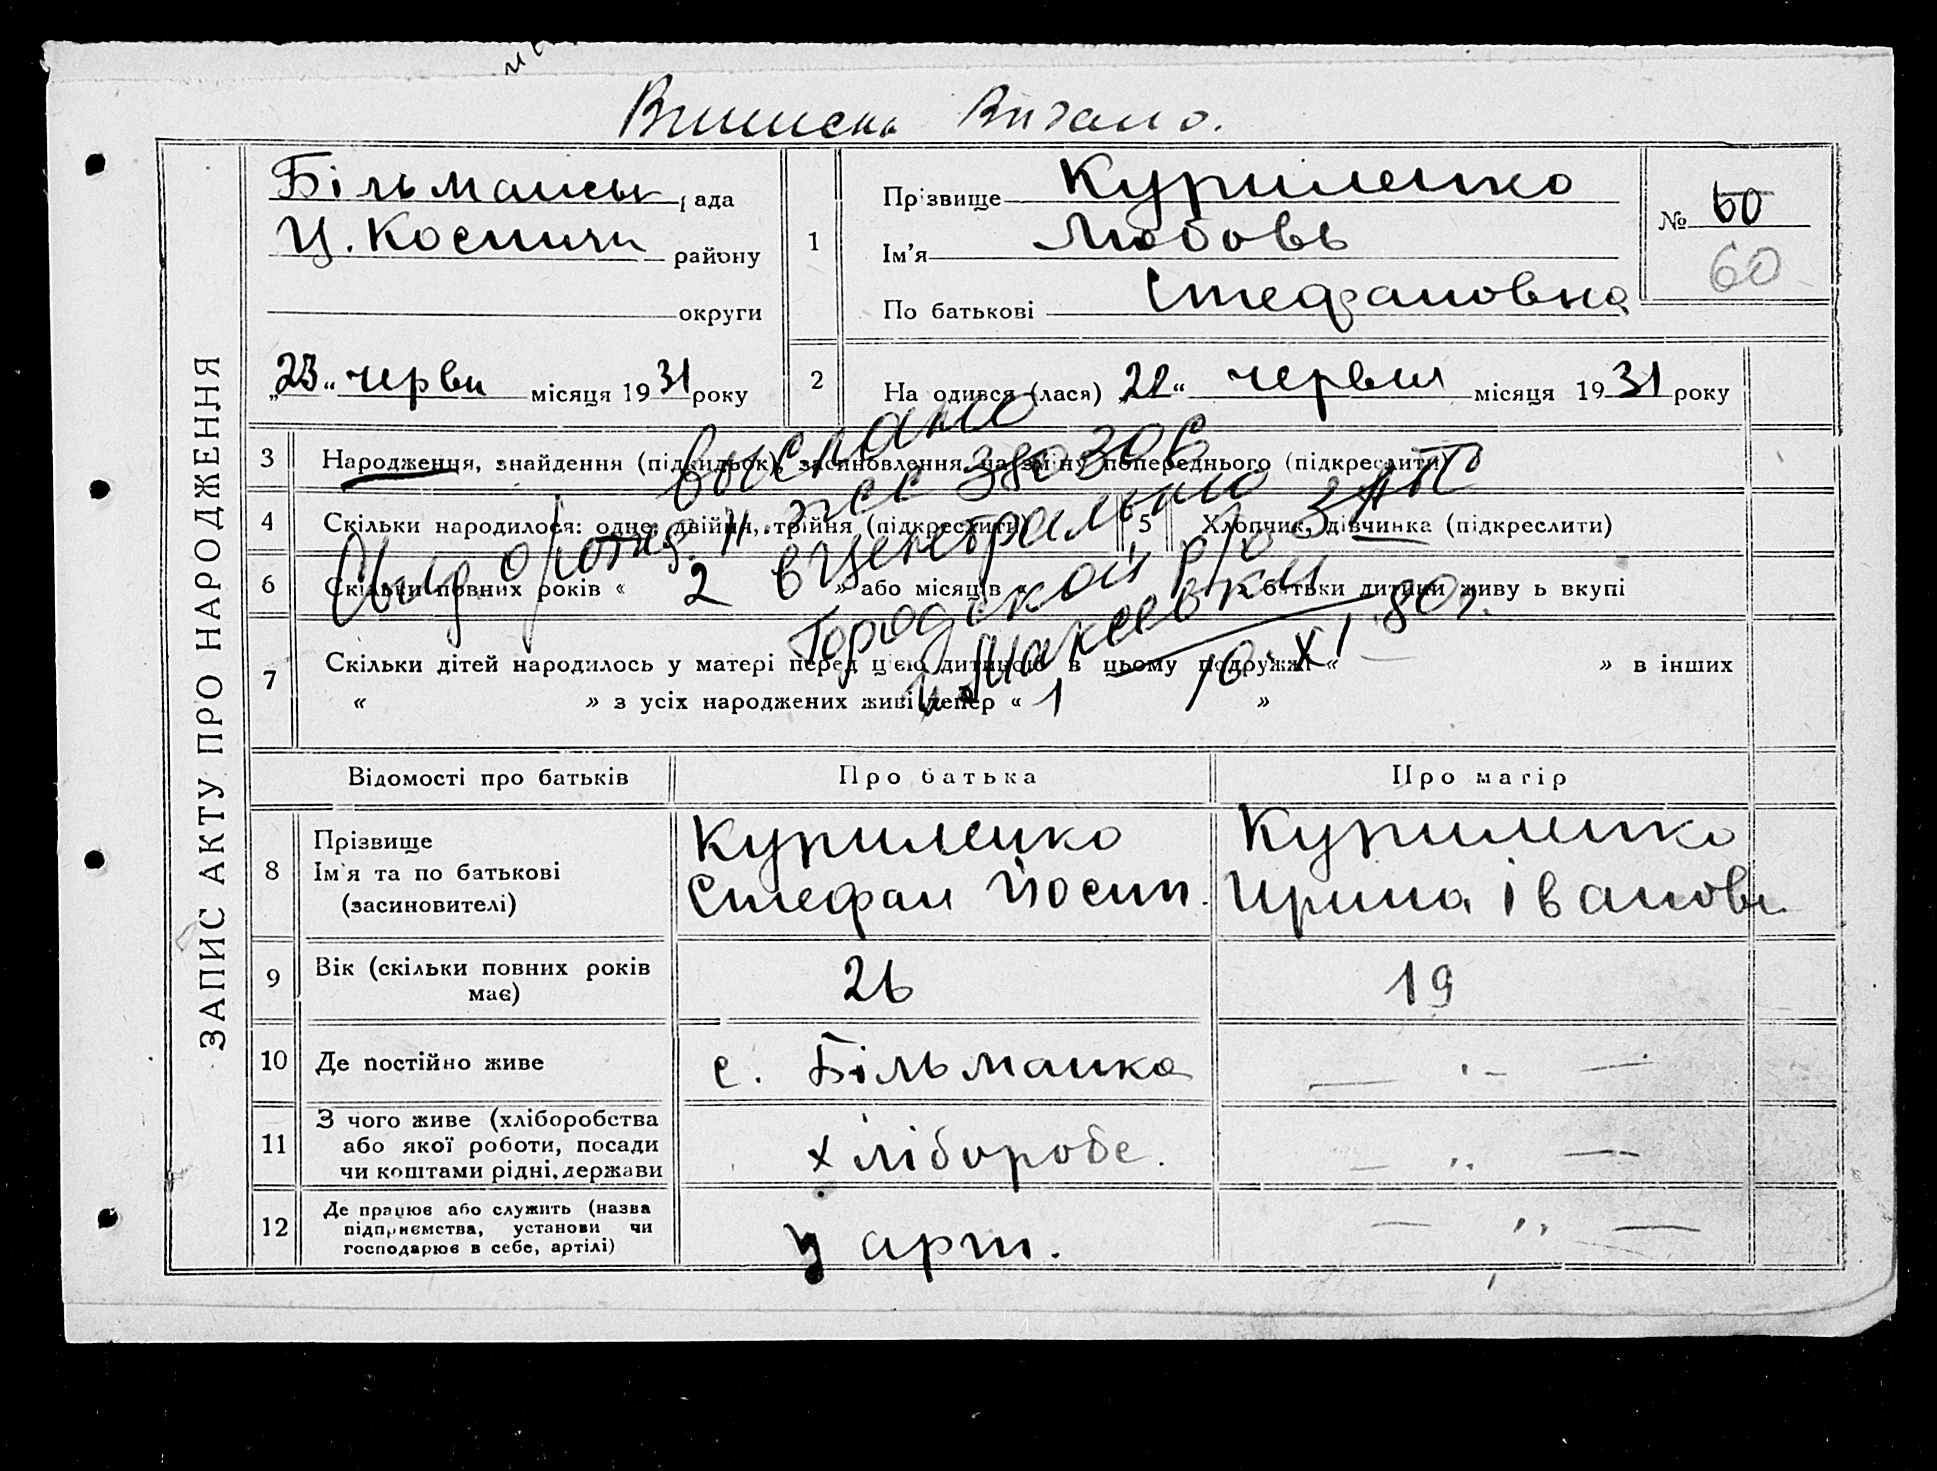 Виписка Видано.
ЗАПИС АКТУ ПРО НАРОДЖЕННЯ
Більманськ рада
Ц. Космич району
округи
„23“ черви місяця 1931 року
1
Прізвище Куриленко
Ім'я Любовь
По батькові Стефановна
№ 60
60
2 На одився (лася) „21“ червня місяця 1931 року
3 Народження, знайдення (підкидьок), засиновлення на зміну попереднього (підкреслити)
4 Скільки народилося: одне, двійня, трійня (підкреслити) 5 Хлопчик, дівчинка (підкреслити)
6 Скільки повних років « 2 » або місяців батьки дитини живу ь вкупі
7 Скільки дітей народилось у матері перед цією дитиною в цьому подружжі « — » в інших
« » з усіх народжених живі тепер « 1 »
выслано
II жс 380306
в Центральное
городской р/о ЗАГС
г. Макеевки
10. XI. 80г.
Відомості про батьків Про батька Про матір
8 Прізвище
Ім'я та по батькові
(засиновителі)
Куриленко
Стефан Йосип.
Куриленко
Ирина Івановн
9 Вік (скільки повних років має) 26 19
10 Де постійно живе с. Більманка — „ —
11 З чого живе (хліборобства
або якої роботи, посади
чи коштами рідні, держави
хлібороbс. — „ —
12 Де працює або служить (назва
підприємства, установи чи
господарює в себе, артілі)
у арт. — „ —